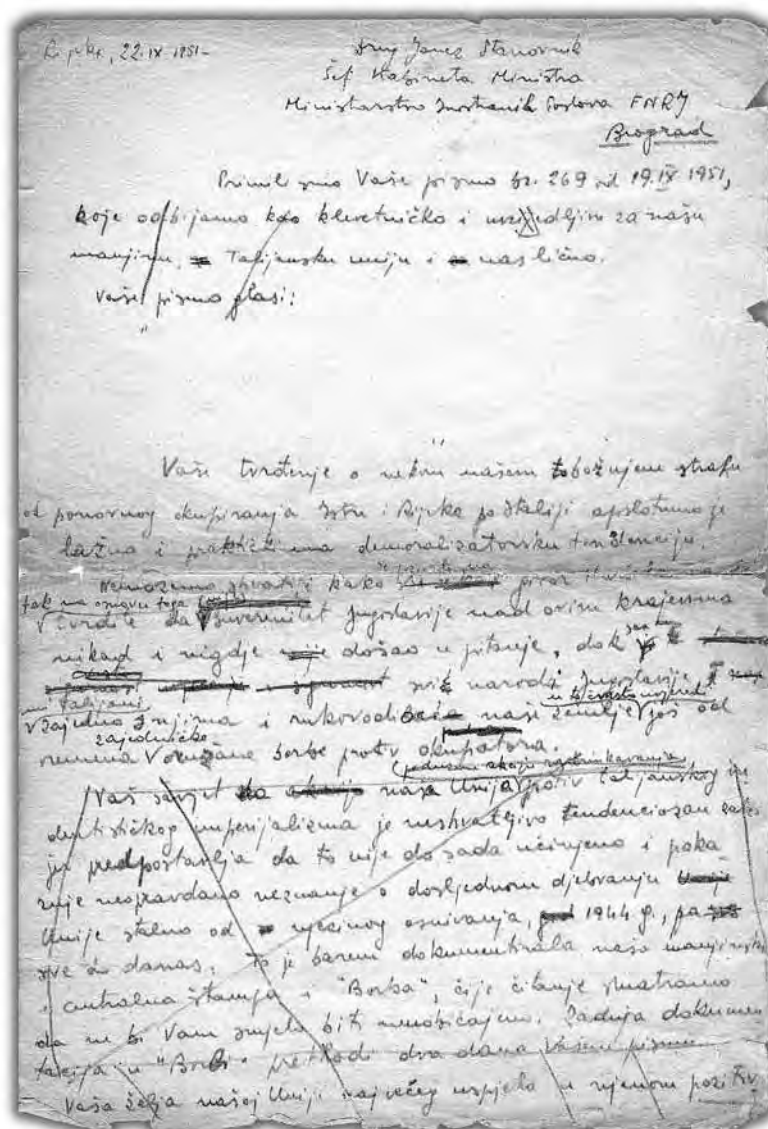 Rijeka, 22.IX.1951-
Drug Janez Stanovnik
Šef Kabineta Ministra
Ministarstvo Inostranih Poslova FNRJ
Beograd
Primili smo Vaše pismo br. 269 od 19.IX 1951,
koje odbijamo kao klevetničko i uvredljivo za našu
manjinu, Talijansku uniju i nas lično.
Vaše pismo glasi:
"
"
Vaše tvrđenje o nekom našem tobožnjem strahu
od ponovnog okupiranja Istre i Rijeke po Italiji apsolutno je
lažno i praktički ima demoralizatorsku tendenciju.
Nemožemo shvatiti kako
tvrdite da suverenitet Jugoslavije nad ovim krajevima
nikad i nigdje nije došao u pitanje, dok
narodi Jugoslavije,
mi talijani
zajedno s njima i rukovodioci naše zemlje još od
zajedničke
vremena oružane borbe protiv okupatora.
Vaš savjet naša Unija protiv talijanskog
imperijalizma je neshvatljivo tendenciozan
predpostavlja da to nije do sada učinjeno i poka
zuje neopravdano neznanje o dosljednom djelovanju
Unije stalno od njezinog osnivanja, 1944 g., pa
sve do danas. To je barem dokumentirala naša manjinska
i centralna štampa i "Borba", čije čitanje smatramo
da ne bi Vam smjelo biti neobičajeno. Zadnja dokumen
tacija u "Borbi" prethodi dva dana Vašem pismu.
Vaša želja našoj Uniji najvećeg uspjeha u njenom pozitiv